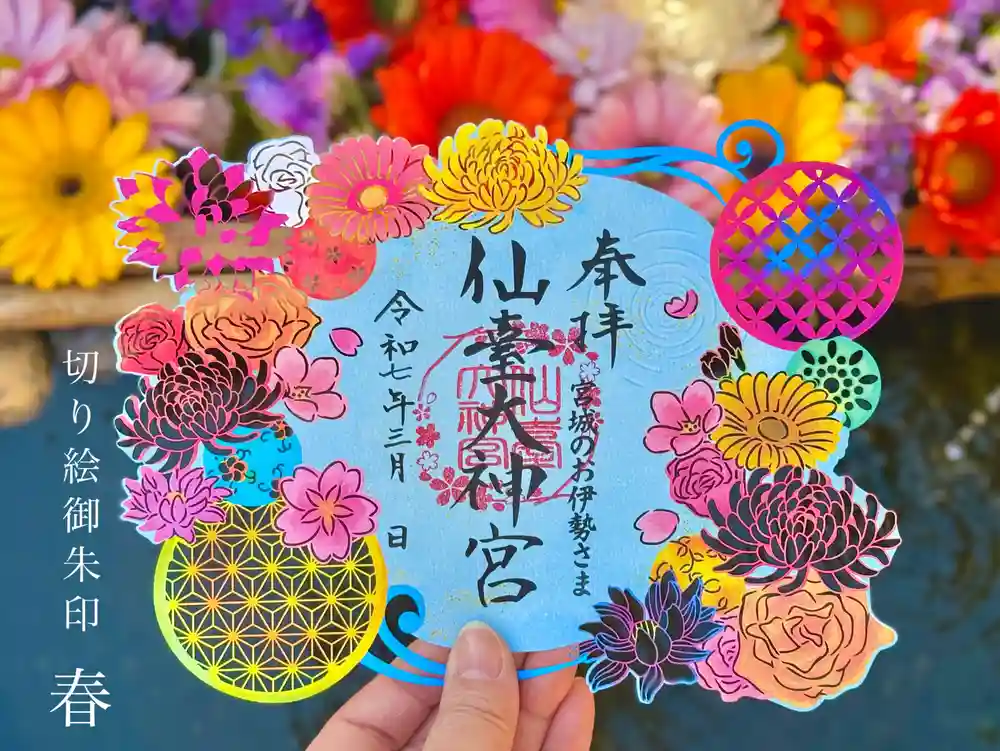 奉拝
宮城のお伊勢さま
仙臺大神宮
仙臺
大神宮
令和七年三月 日
切り絵御朱印 春